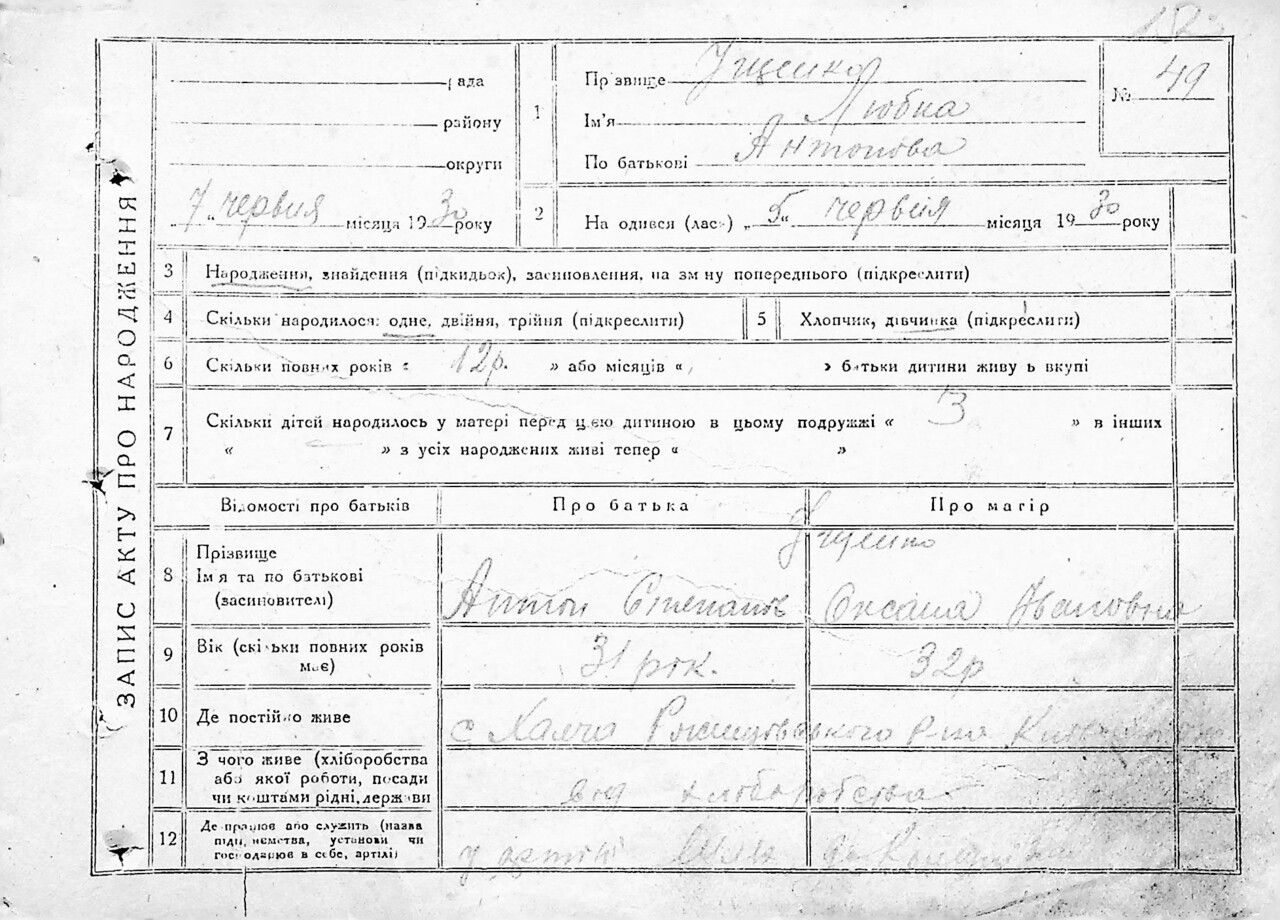 152
ЗАПИС АКТУ ПРО НАРОДЖЕННЯ
рада
району
округи
7 „ червня місяця 1930 року
1
Прізвище Ущенко
Ім'я Любка
По батькові Антонова
№ 49
2 На одився (лась) „ 5 “ червня місяця 1930 року
3 Народження, знайдення (підкидьок), засиновлення, на зміну попереднього (підкреслити)
4 Скільки народилося: одне, двійня, трійня (підкреслити)
5 Хлопчик, дівчинка (підкреслити)
6 Скільки повних років « 12р. » або місяців « » батьки дитини живуть вкупі
7 Скільки дітей народилось у матері перед цею дитиною в цьому подружжі « 3 » в інших
« — » з усіх народжених живі тепер « »
Відомості про батьків Про батька Про матір
8 Прізвище Ущенко
Ім'я та по батькові
(засиновителі) Антон Степанов Оксана Івановна
9 Вік (скільки повних років
має) 31 рок. 32р
10 Де постійно живе с. Халча р-на
11 З чого живе (хліборобства
або якої роботи, посади
чи коштами рідні, держави від хліборобства
12 Де працює або служить (назва
підприємства, установи чи
господарює в себе, артілі) у артілі